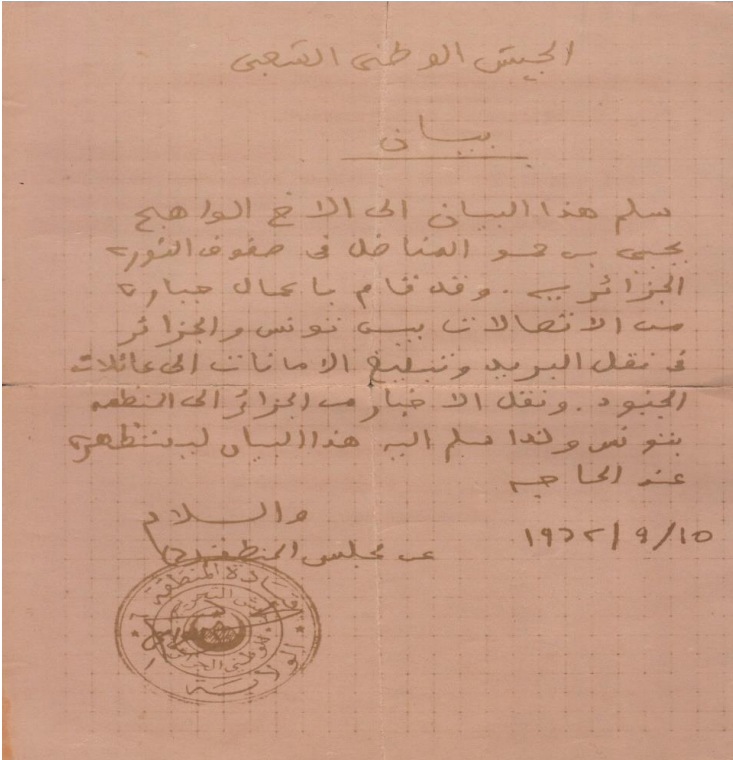 الجيش الوطني الشعبي
بيان
سلم هذا البيان الى الاخ الواهج
يحيى بن حمو المناضل في صفوف الثورة
الجزائرية. وقد قام باعمال جبارة
من الاتصالات بين تونس والجزائر
في نقل البريد وتبليغ الامانات الى عائلات
الجنود. ونقل الاخبار من الجزائر الى المنظمه
بتونس ولذا سلم اليه هذا البيان ليستظهر به
عند الحاجه
والسلام
١٩٦٢/٩/١٥
عن مجلس المنطقة
قيادة المنطقة
جيش التحرير
الوطني
الولاية